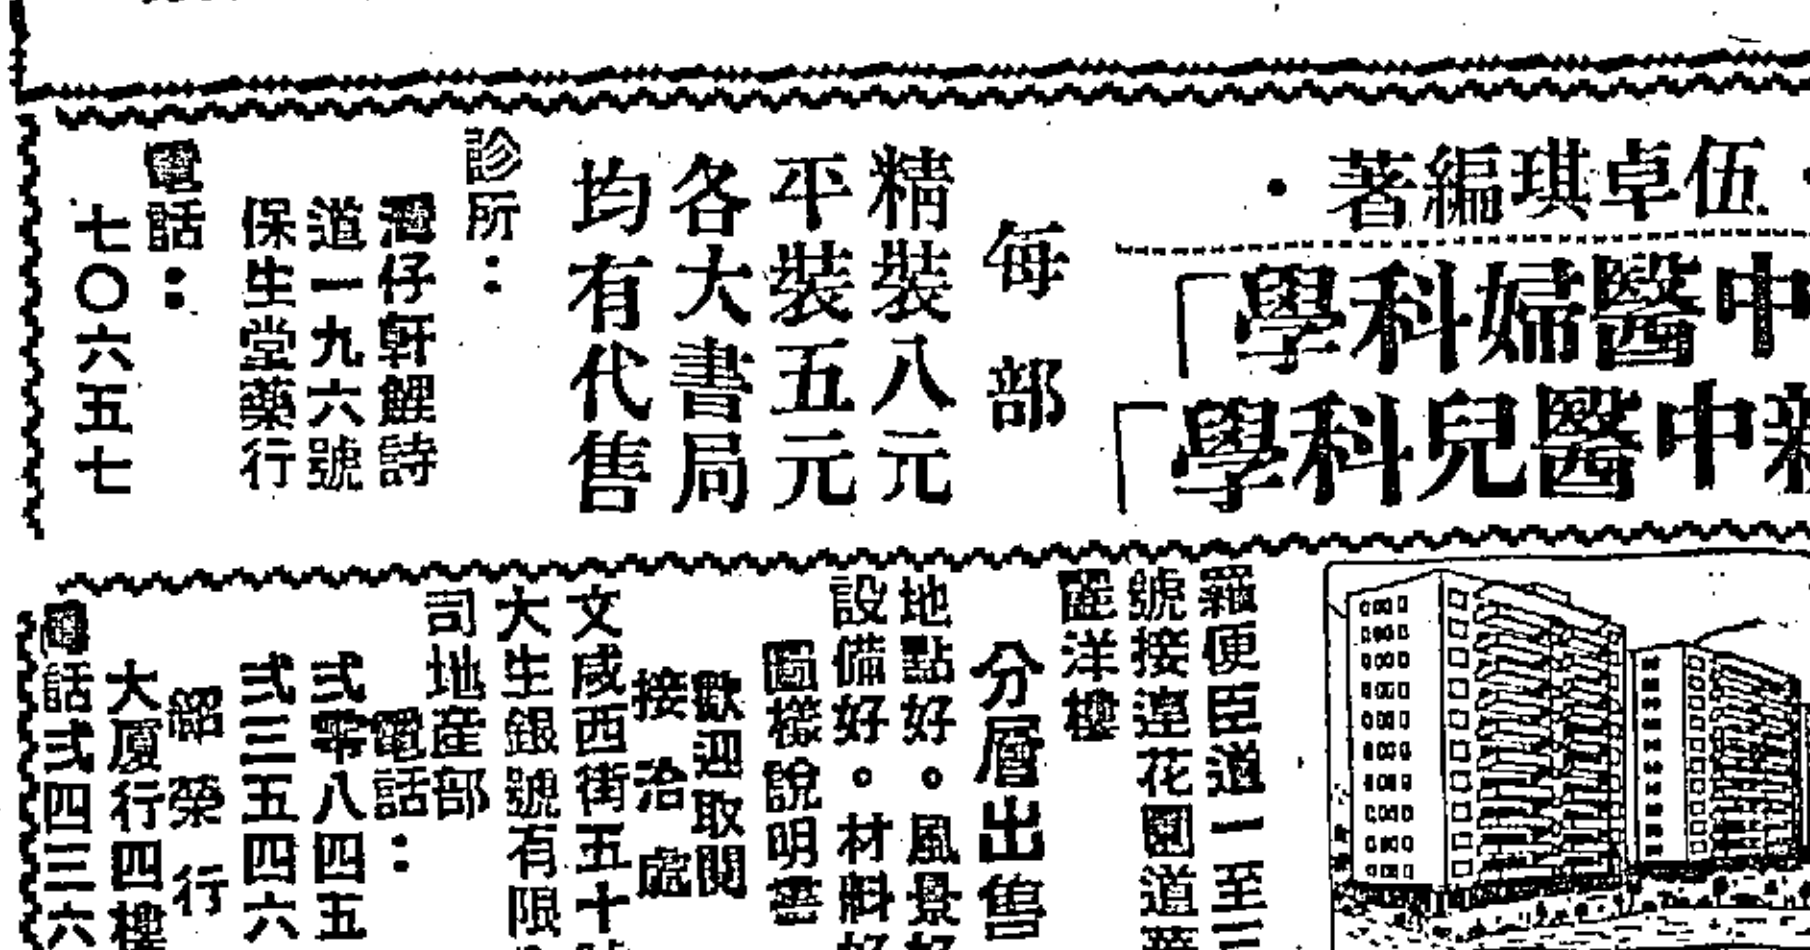 伍卓琪編著
中醫婦科學「
新中醫兒科學「
每部
精裝八元
平裝五元
各大書局
均有代售
診所：
灣仔軒鯉詩
道一九六號
保生堂藥行
電話：
七〇六五七
羅便臣道一至三
號接連花園道
麗洋樓
分層出售
地點好。風景好
設備好。材料好
圖樣說明書
歡迎取閱
接洽處
文咸西街五十號
大生銀號有限
司地産部
電話：
弍零八四五
弍三五四六
紹榮行
大厦行四樓
電話弍四三六